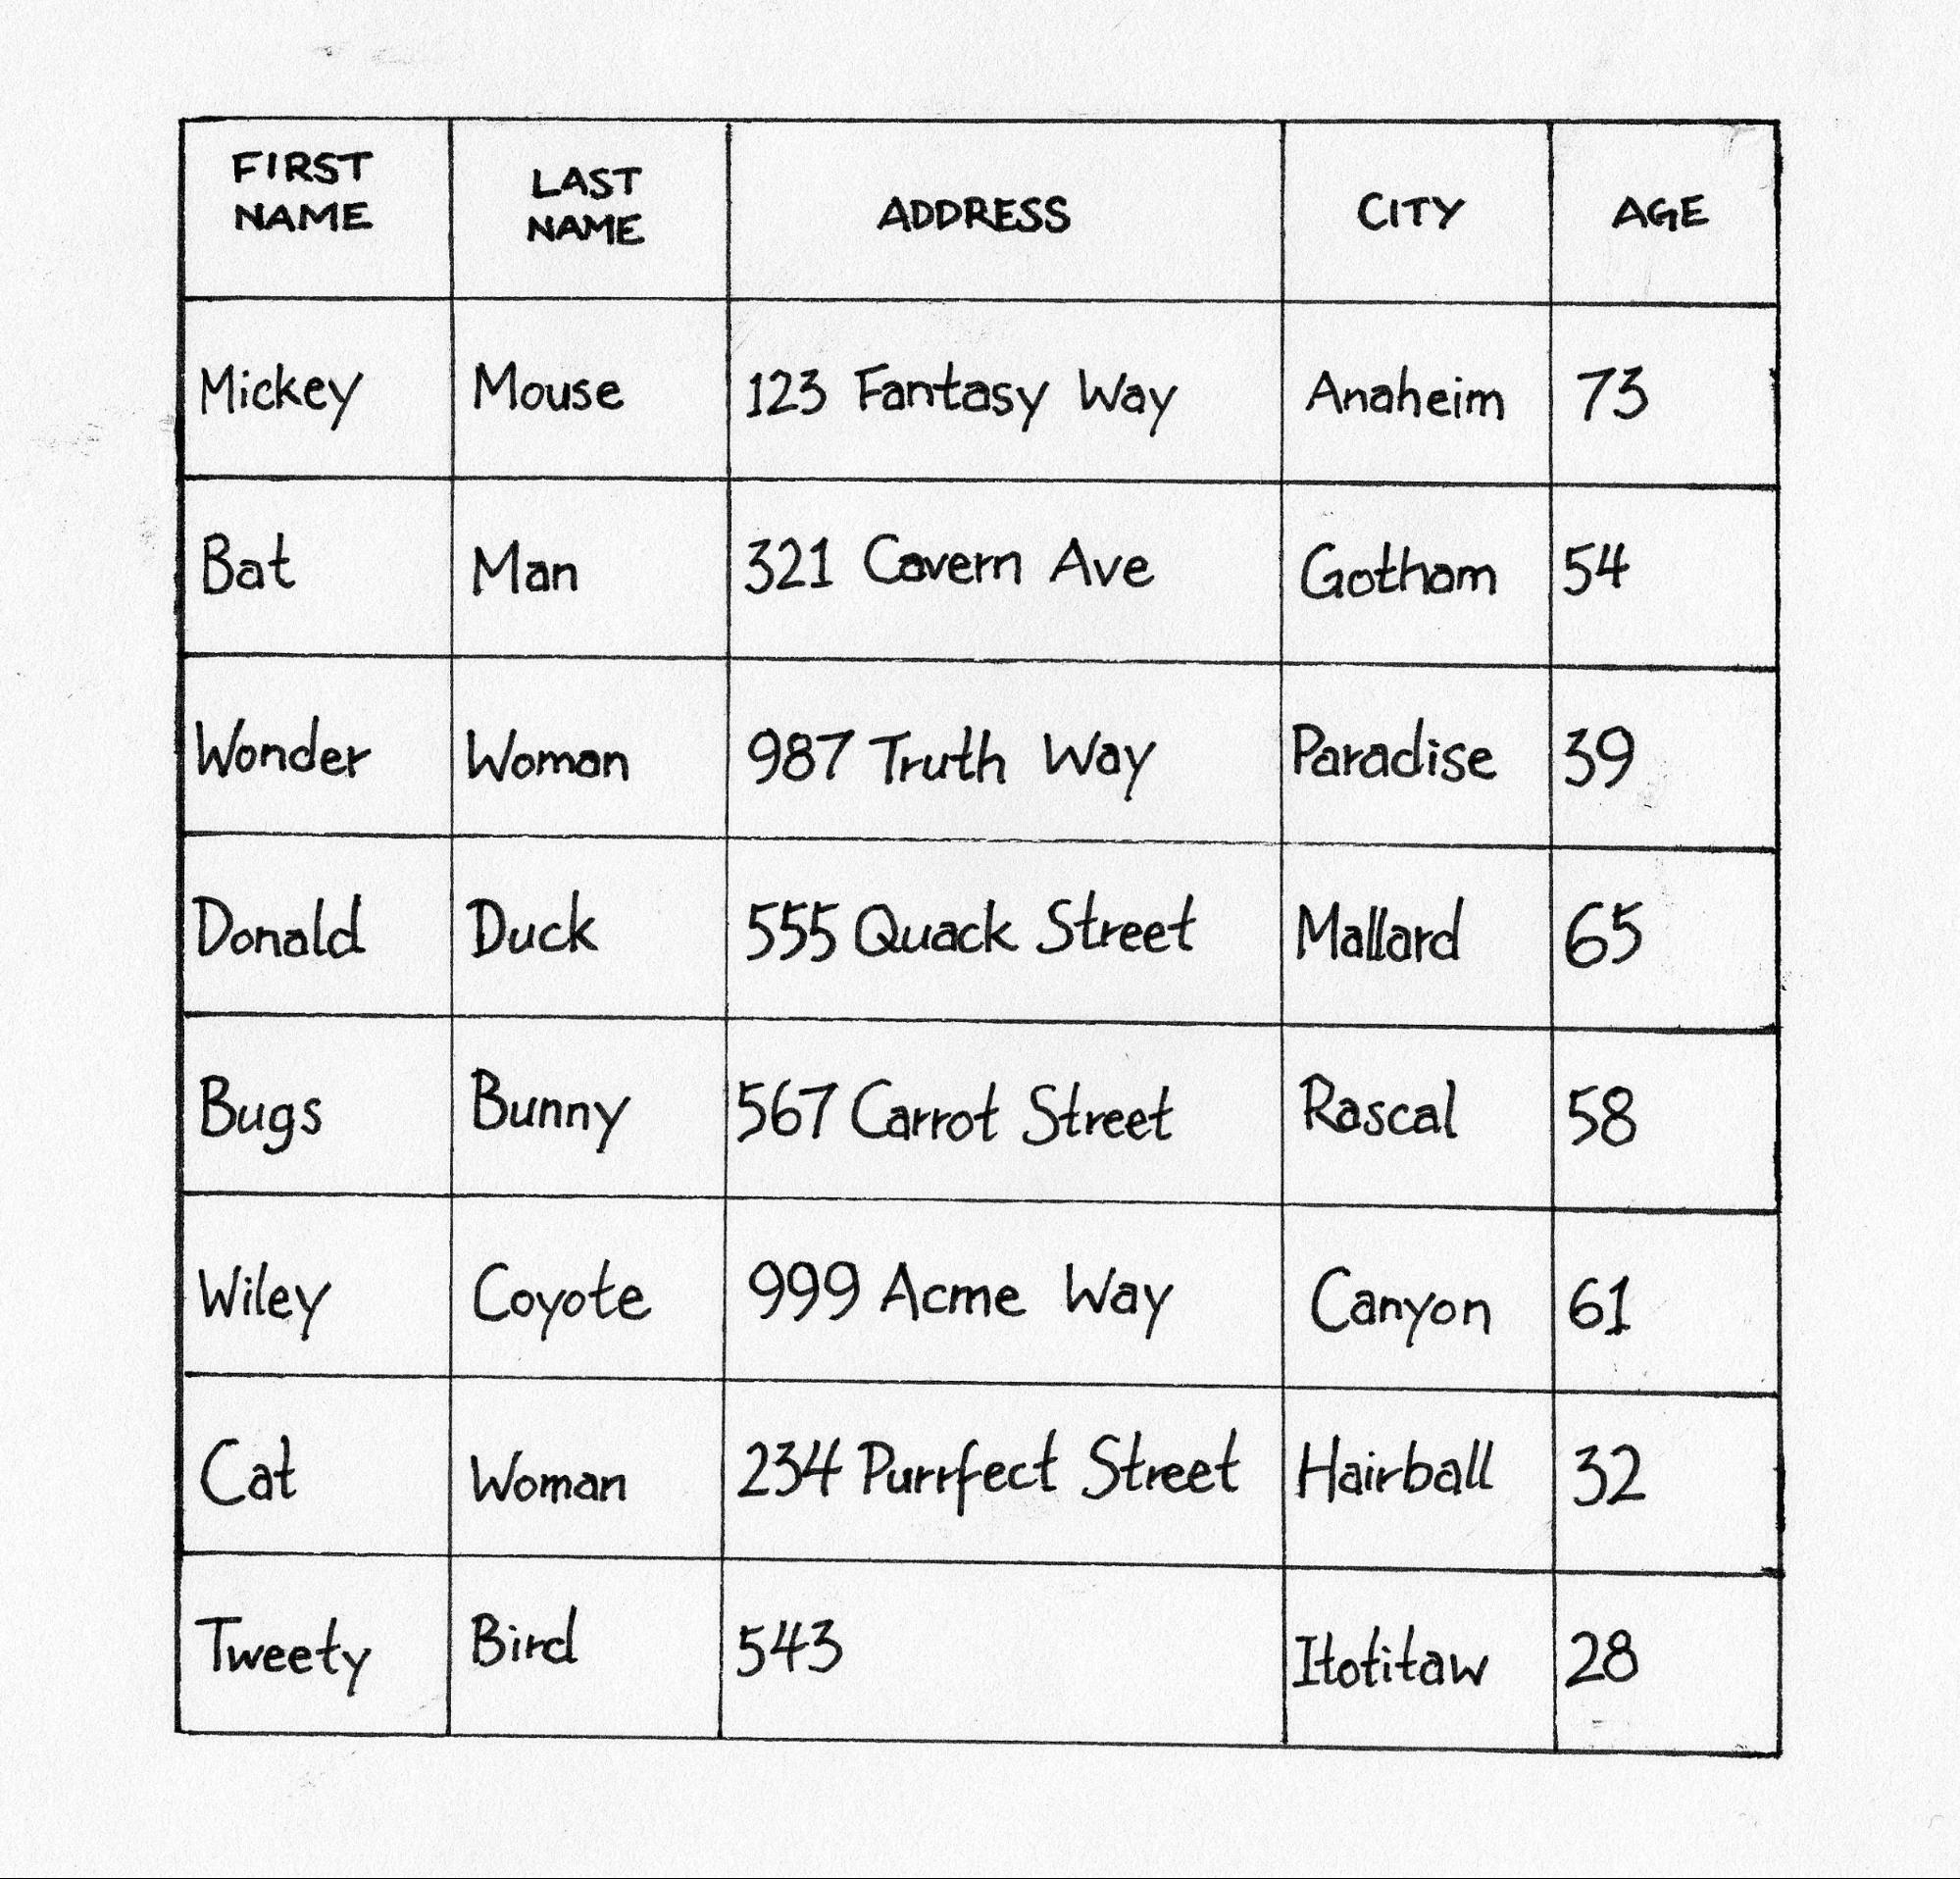 FIRST NAME LAST NAME ADDRESS CITY AGE
Mickey Mouse 123 Fantasy Way Anaheim 73
Bat Man 321 Cavern Ave Gotham 54
Wonder Woman 987 Truth Way Paradise 39
Donald Duck 555 Quack Street Mallard 65
Bugs Bunny 567 Carrot Street Rascal 58
Wiley Coyote 999 Acme Way Canyon 61
Cat Woman 234 Purrfect Street Hairball 32
Tweety Bird 543 Itotitaw 28